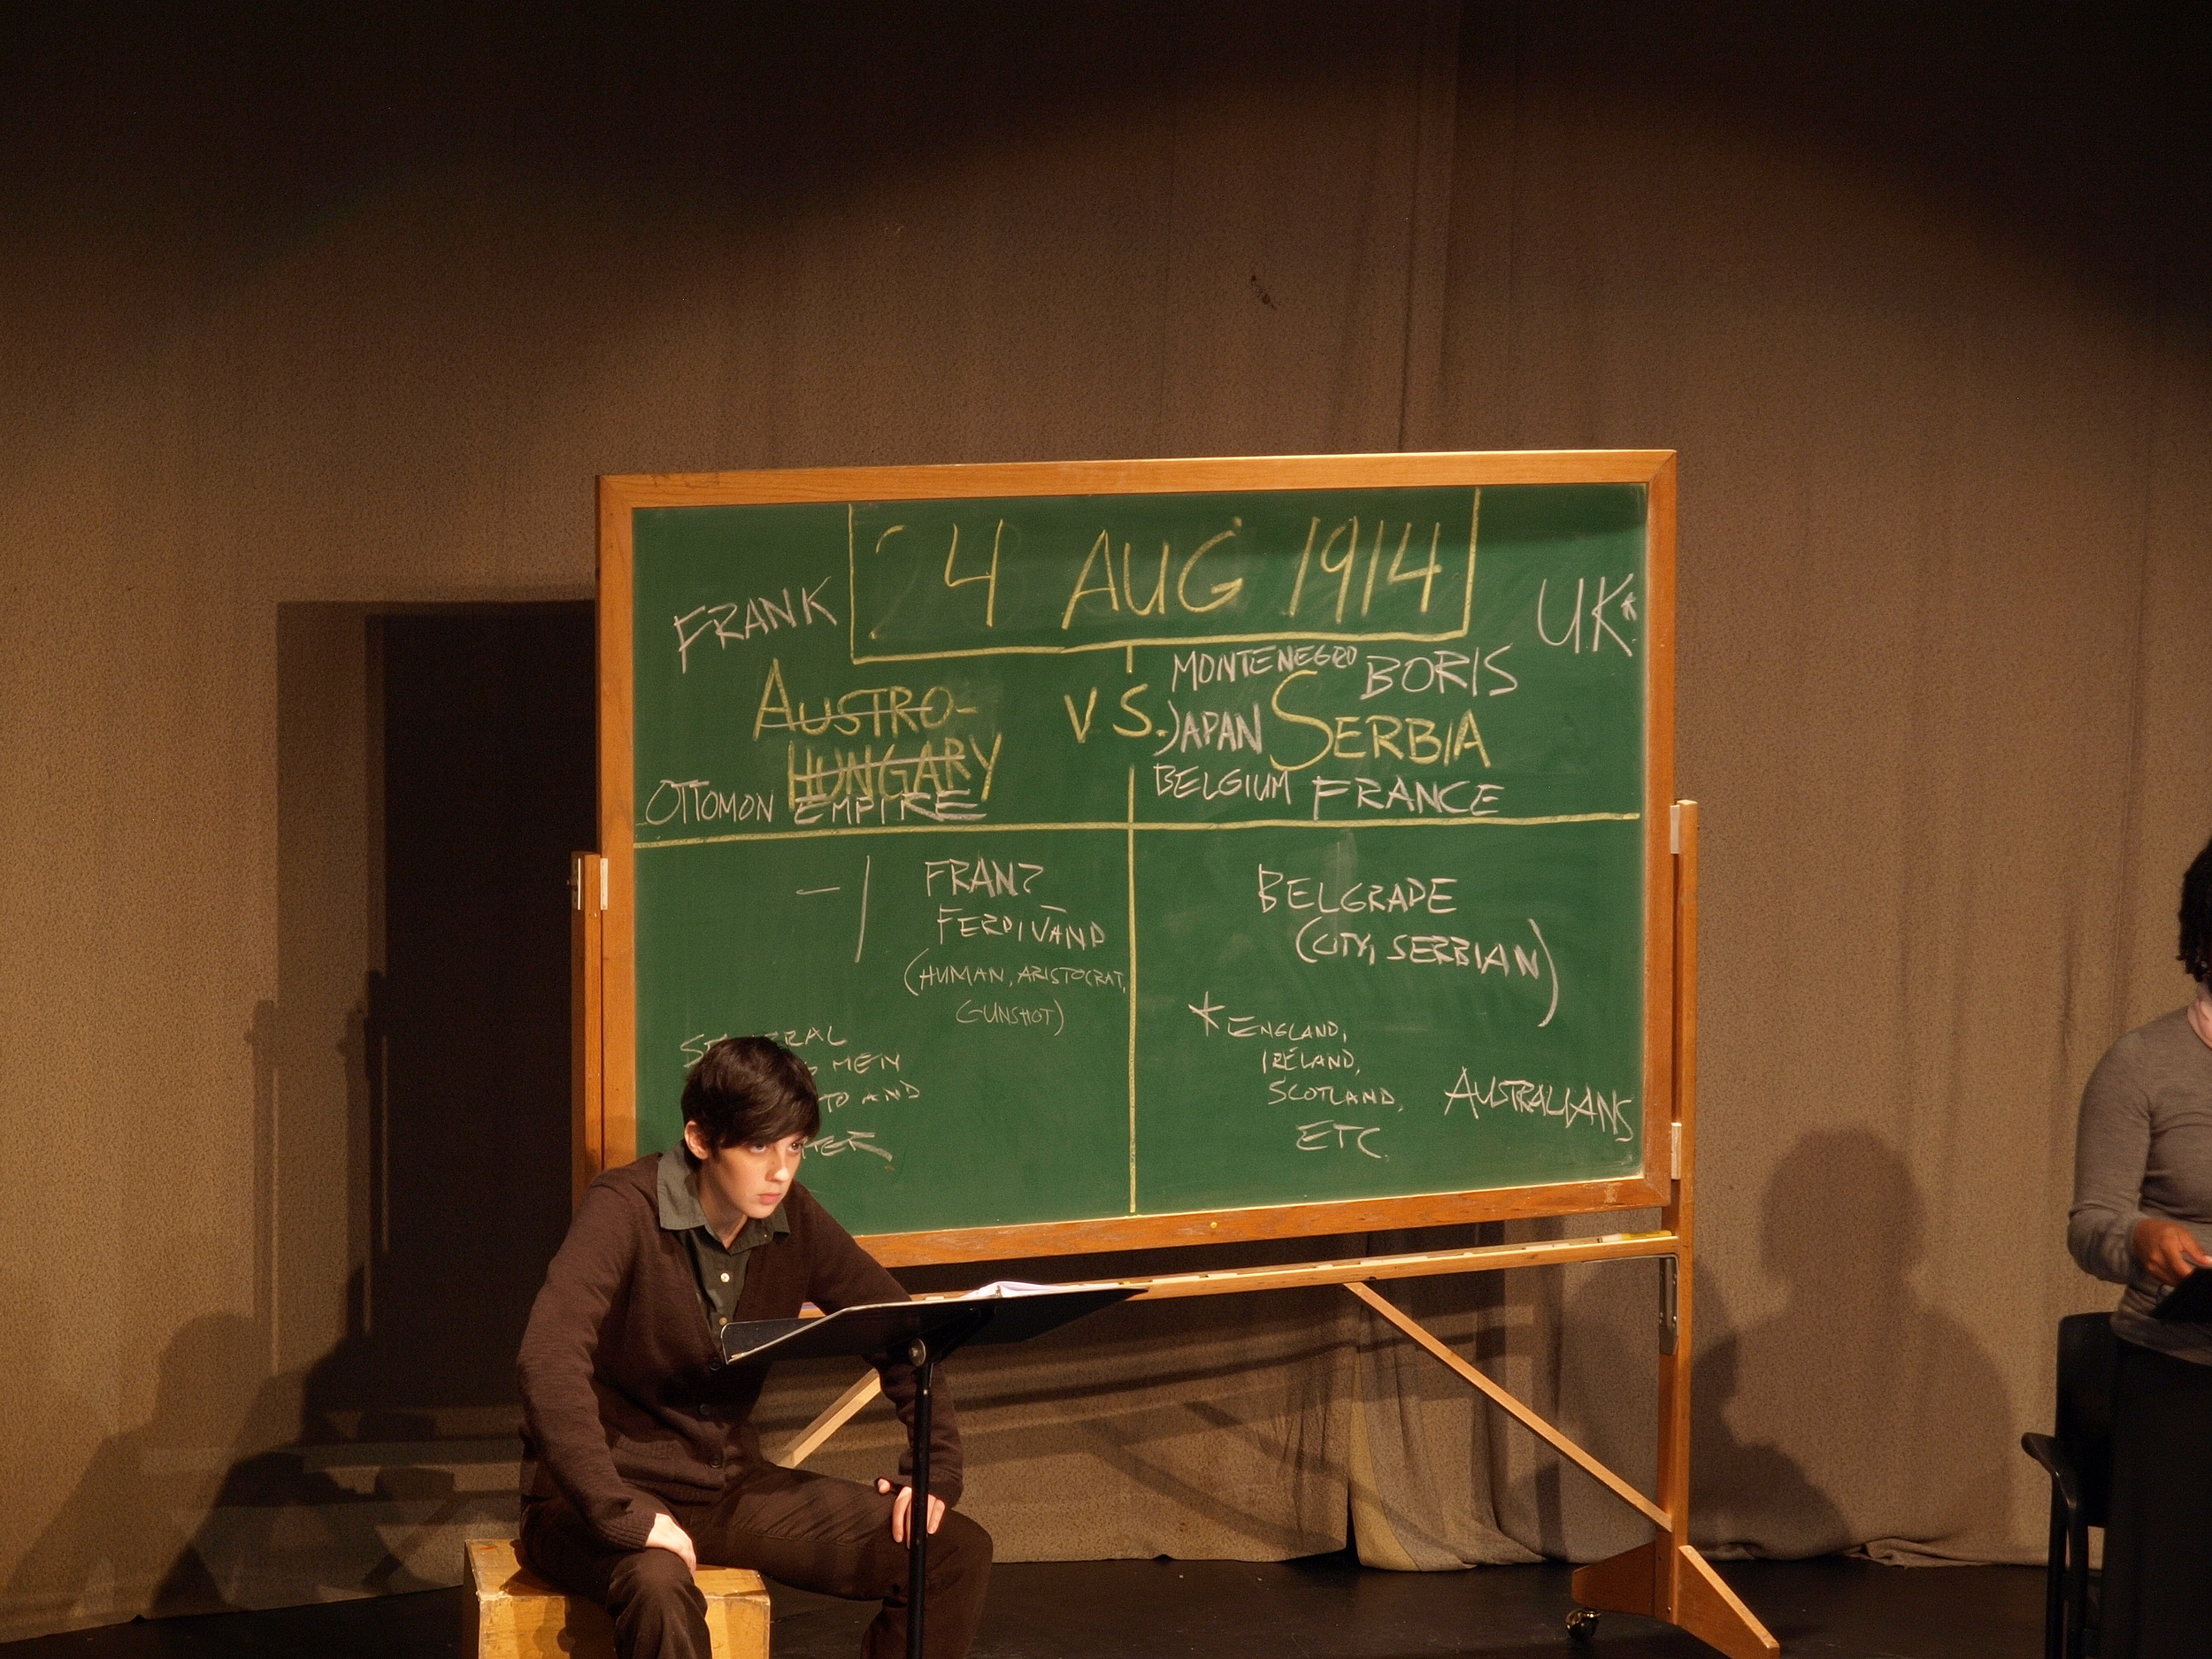 24 AUG 1914
FRANK
UK*
AUSTRO-
HUNGARY
OTTOMON EMPIRE
VS.
MONTENEGRO BORIS
JAPAN SERBIA
BELGIUM FRANCE
FRANZ
FERDINAND
(HUMAN, ARISTOCRAT,
GUNSHOT)
MEN
AND
BELGRADE
(CITY, SERBIAN)
*ENGLAND,
IRELAND,
SCOTLAND,
ETC.
AUSTRALIANS